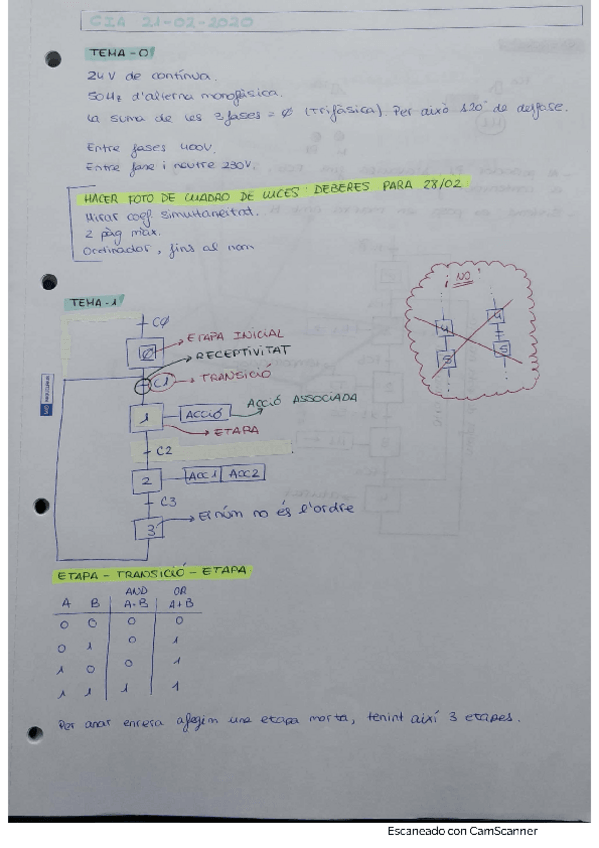 CIA 21-02-2020
TEMA-0
24V de contínua.
50Hz d'alterna monofàsica.
La suma de les 3 fases = Ø (Trifàsica). Per això 120° de desfase.
Entre fases 400V.
Entre fase i neutre 230V.
HACER FOTO DE CUADRO DE LUCES DEBERES PARA 28/02
Mirar coef simultaneitat.
2 pàg màx.
Ordinador, fins al nom
¡NO!
4 4
5 5
TEMA-1
C0
0 ETAPA INICIAL
RECEPTIVITAT
C1 TRANSICIÓ
1 ACCIÓ ACCIÓ ASSOCIADA
ETAPA
C2
2 ACC1 ACC2
C3
3 El núm no és l'ordre
ETAPA - TRANSICIÓ - ETAPA
AND OR
A B A·B A+B
0 0 0 0
0 1 0 1
1 0 0 1
1 1 1 1
Per anar enrera afegim una etapa morta, tenint així 3 etapes.
Escaneado con CamScanner